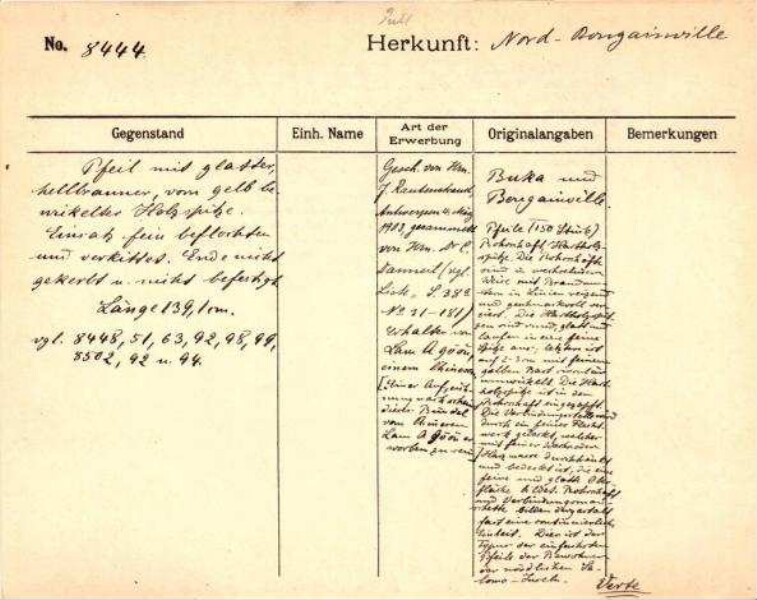 No. 8444
Herkunft: Nord-Bougainville
Gegenstand
Einh. Name
Art der Erwerbung
Originalangaben
Bemerkungen
Pfeil mit glatter,
hellbrauner, vorn gelb be-
wickelter Holzspitze.
Einsatz fein beflochten
und verkittet. Ende nicht
gekerbt u. nicht befestigt.
Länge 139,1 cm.
vgl. 8448, 51, 63, 92, 98, 99,
8502, 92 u. 94.
Gesch. von Hrn.
Antwerpen
1908, gesammelt
von Hrn. Dr. C.
(vgl.
S. 38
No 31-181)
Erhalten von
Lam A
einem Chinesen
dieser Bündel
vom Chinesen
Lam A er-
worben zu sein]
Buka und
Bougainville.
Pfeile (150 Stück)
Rohrschaft Hartholz-
spitze. Die Rohrschäfte
sind in
Weise mit Brandmu-
stern in Linien
und geschmackvoll ver-
ziert. Die Hartholzspit-
zen sind rund, glatt und
laufen in eine feine
Spitze aus, letztere ist
auf 2-3 cm mit feinem
gelben Bast
umwickelt. Die Hart-
holzspitze ist in den
Rohrschaft eingezapft.
Die Verbindungsstelle wird
durch ein feines Flecht-
werk gedeckt, welches
mit feiner
Harzmasse
und bedeckt ist, die eine
feine und glatte Ober-
fläche bildet. Rohrschaft
und Verbindungsman-
schette bilden dergestalt
fast eine continuierliche
Einheit. Dies ist der
Typus der einfachsten
Pfeile der Bewohner
der nördlichen Sa-
lomo-Inseln.
Verte